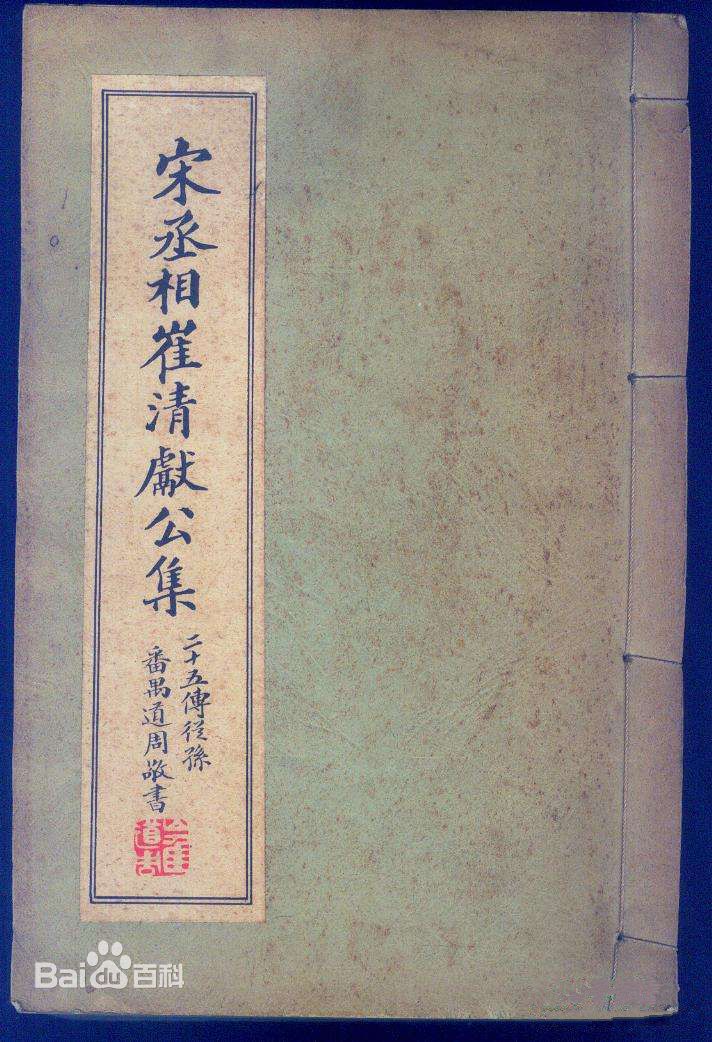 宋丞相崔清獻公集
二十五傳從孫
番禺道周敬書
Bai du 百科